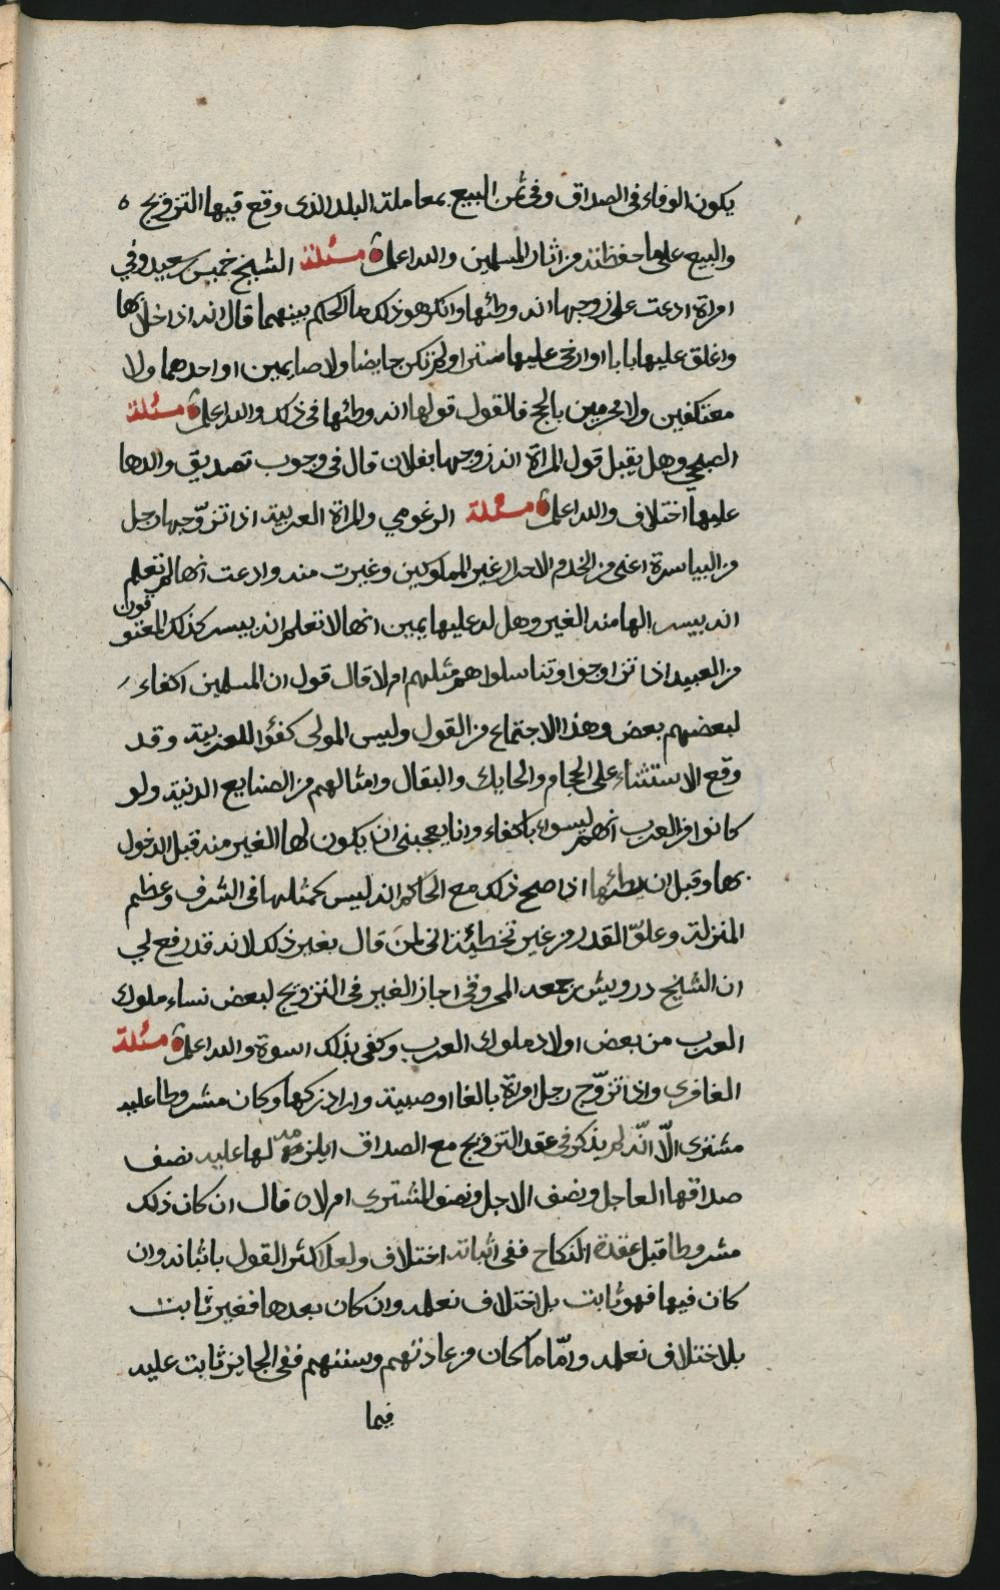 يكون الوفاء في الصداق وفي ثمن البيع بمعاملة البلد الذي وقع فيها التزويج ه
والبيع على ما حفظته من اثار المسلمين والله اعلم مسئلة الشيخ خميس بن سعيد وفي
امراة ادعت على زوجها انه وطئها وانكر هو ذلك ما الحكم بينهما قال انه اذا خلا بها
واغلق عليها بابا او ارخى عليها سترا ولم تكن حايضا ولا صايمين او احدهما ولا
معتكفين ولا محرمين بالحج فالقول قولها انه وطئها في ذلك والله اعلم مسئلة
الصبحي وهل يقبل قول المراة ان زوجها بفلان قال في وجوب تصديق والدها
عليها اختلاف والله اعلم مسئلة الزغومي والمراة العربية اذا تزوّجها رجل
من البياسرة اعني من الخدم الاحرار غير المملوكين وغيرت منه وادعت انها لم تعلم
انه بيسر الها منه الغير وهل له عليها يمين انها لا تعلم انه بيسر كذلك المعتوقون
من العبيد اذا تزاوجوا وتناسلوا هم مثلهم ام لا قال قول ان المسلمين اكفاء
لبعضهم بعض وهذا الاجتماع من القول وليس المولى كفؤا للعربية وقد
وقع الاستثناء على الحجام والحايك والبقال وامثالهم من الصنايع الدنية ولو
كانوا من العرب انهم ليسوا باكفاء وانا يعجبني ان يكون لها الغير منه قبل الدخول
بها وقبل ان يطئها اذا صح ذلك مع الحاكم انه ليس كمثلها في الشرف وعظم
المنزلة وعلوّ القدر من غير تخطئة اني لمن قال بغير ذلك لانه قد رفع لي
ان الشيخ درويش بن جمعه المحروقي اجاز الغير في التزويج لبعض نساء ملوك
العرب من بعض اولاد ملوك العرب وكفى بذلك اسوة والله اعلم مسئلة
الغافري واذا تزوّج رجل امراة بالغا او صبية واراد تركها وكان مشروطا عليه
مشترى الّا انّه لم يذكر في عقد التزويج مع الصداق ايلزمه لها عليه نصف
صداقها العاجل ونصف الاجل ونصف المشترى ام لا ه قال ان كان ذلك
مشروطا قبل عقدة النكاح ففي اثباته اختلاف ولعل اكثر القول باثباته وان
كان فيها فهو ثابت بلا اختلاف نعلمه وان كان بعدها فغير ثابت
بلا اختلاف نعلمه وامّا ما كان من عادتهم وسننهم ففي الجايز ثابت عليه
فيما